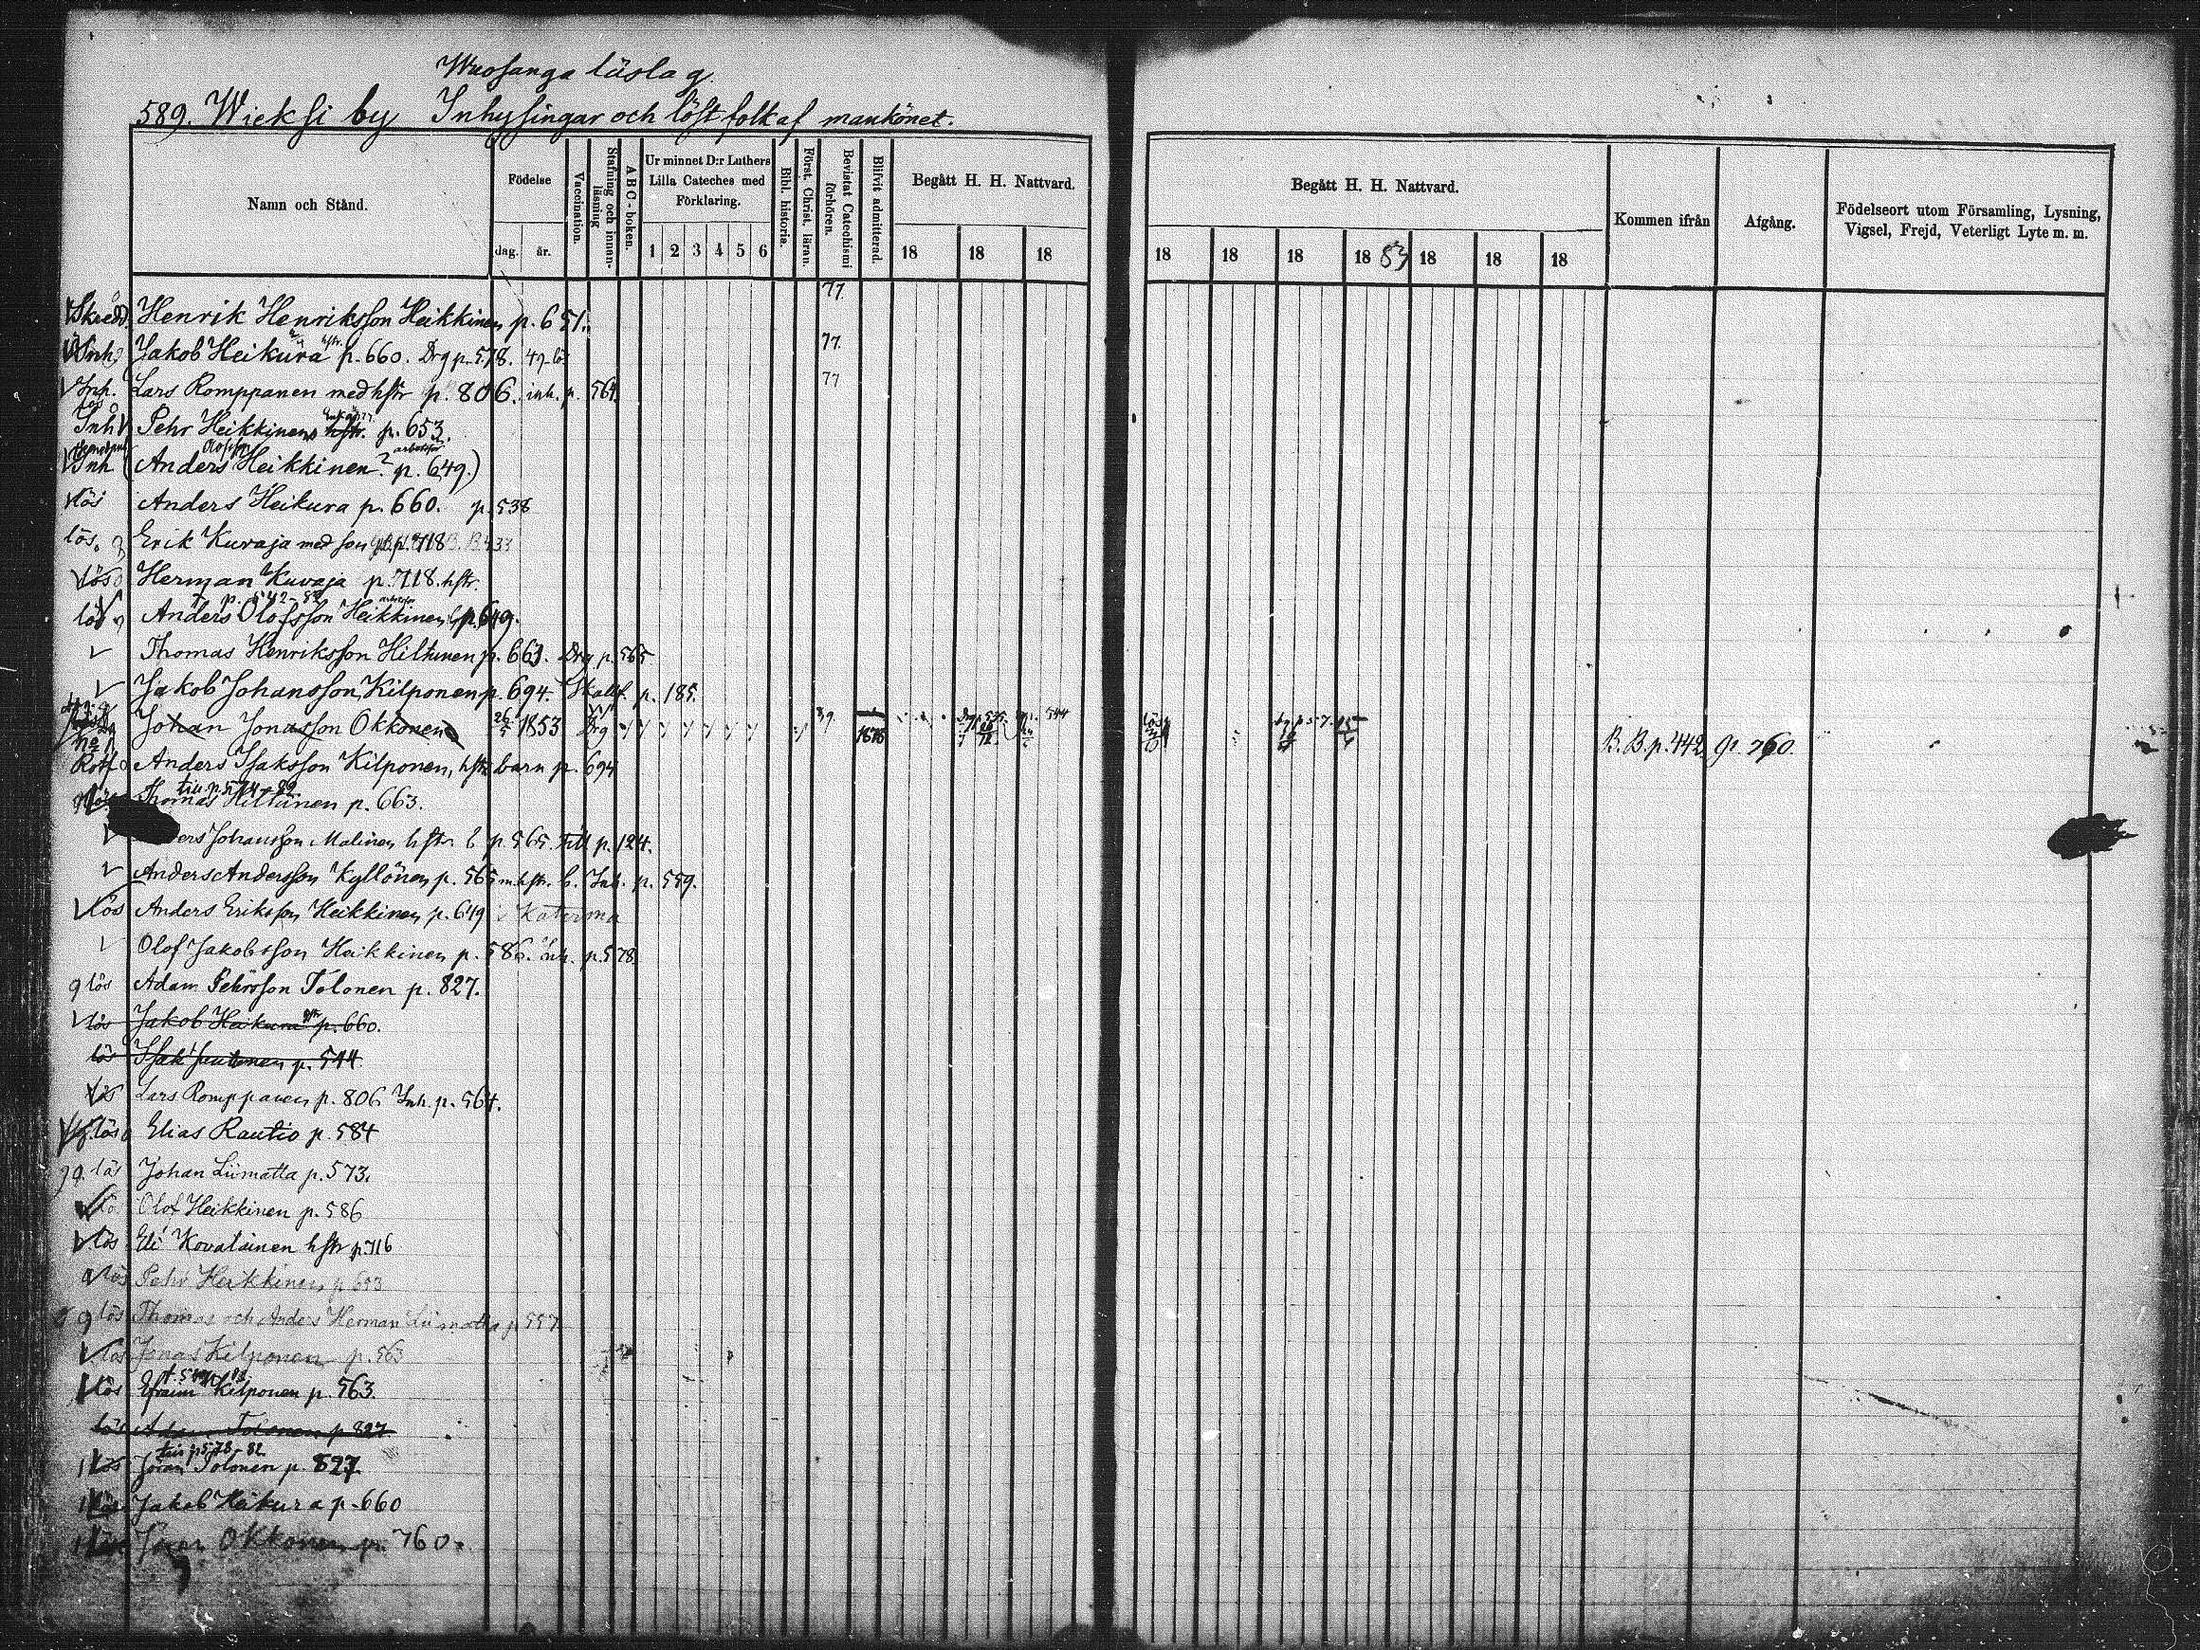 Wuosanga läslag.
589. Wieksi by Inhysingar och löst folk af mankönet.
Namn och Stånd.
Födelse
dag.
år.
Vaccination.
Stafning och innanläsning
A B C - boken.
Ur minnet D:r Luthers Lilla Cateches med Förklaring.
1 2 3 4 5 6
Bibl. historia.
Först. Christ. läran.
Bevistat Catechismi förhören.
Blifvit admitterad.
Begått H. H. Nattvard.
18 18 18
Begått H. H. Nattvard.
18 18 18 1883 18 18 18
Kommen ifrån
Afgång.
Födelseort utom Församling, Lysning, Vigsel, Frejd, Veterligt Lyte m. m.
Skrädd. Henrik Henriksson Heikkinen p. 651. 77.
Inh. Jakob Heikura hstr. p. 660. Drg p. 578. 77.
Inh. Lars Romppanen med hstr p. 806. inh. p. 564. 77
Inh Pehr Heikkinens hstr. p. 653.
Inh (Anders Olofsson Heikkinen p. 649.)
lös Anders Heikura p. 660. p. 538
lös. Erik Kuvaja med son p. 718
lös Herman Kuvaja p. 718. hstr.
lös Anders Olofsson Heikkinen p. 649.
Thomas Henriksson Hiltunen p. 663. Drg p. 565
Jakob Johansson Kilponen p. 694. p. 185.
Johan Jonasson Okkonen 1853 Drg 1878 544 B. B. p. 442 p. 760.
Rotf Anders Isaksson Kilponen, hstr barn p. 694
Thomas Hiltunen p. 663.
Johansson Malinen hstr b p. 565. Till p. 124.
Anders Andersson Kyllönen p. 565 m. hstr. b. Inh. p. 559.
lös Anders Eriksson Heikkinen p. 649 i Katerma
Olof Jakobsson Heikkinen p. 586. Inh. p. 578.
lös Adam Pehrsson Tolonen p. 827.
lös Jakob Heikura hstr p. 660.
lös Isak p. 544
lös Lars Romppanen p. 806 Inh. p. 564.
lös Elias Rautio p. 584
lös Johan Liimatta p. 573.
lös Olof Heikkinen p. 586
lös Eli Kovalainen hstr p. 716
lös Pehr Heikkinen p. 653
lös Thomas och Anders Herman Liimatta p 557
lös Jonas Kilponen p. 563
lös Efraim Kilponen p. 563.
lös Adam Tolonen p 827
lös Johan Tolonen p. 827.
lös Jakob Heikura p. 660
lös Okkonen p. 760.